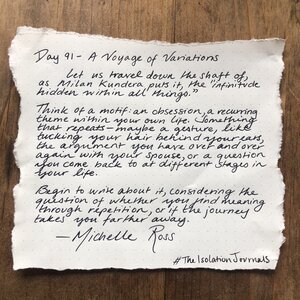 Day 91 - A Voyage of Variations
Let us travel down the shaft of,
as Milan Kundera puts it, the "infinitude
hidden within all things."
Think of a motif: an obsession, a recurring
theme within your own life. Something
that repeats - maybe a gesture, like
tucking your hair behind your ears,
the argument you have over and over
again with your spouse, or a question
you come back to at different stages in
your life.
Begin to write about it, considering the
question of whether you find meaning
through repetition, or if the journey
takes you farther away.
- Michelle Ross
#TheIsolationJournals